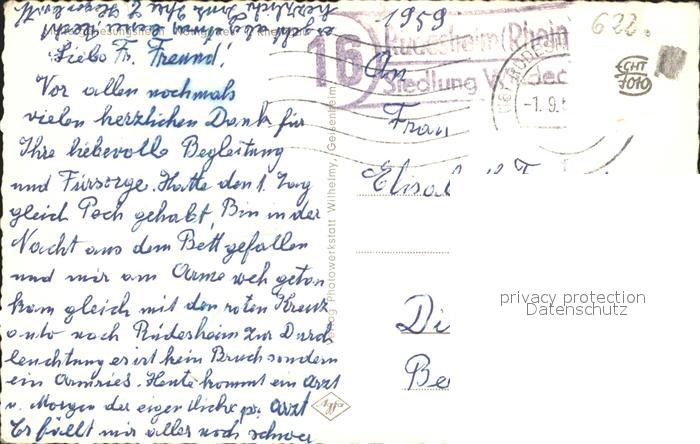 1959
622.
16
Rüdesheim (Rhein)
Siedlung W
-1.9.5
ECHT
FOTO
Liebe Fr. Freund!
Vor allen nochmals
vielen herzlichen Dank für
Ihre liebevolle Begleitung
und Fürsorge. Hatte den 1. Tag
gleich Pech gehabt, Bin in der
Nacht aus dem Bett gefallen
und mir am Arme weh getan
kam gleich mit den roten Kreuz
auto nach Rüdesheim zur Durch
leuchtung es ist kein Bruch sondern
ein Armries. Heute kommt ein Arzt
u. Morgen der eigentliche Arzt
Es fällt mir alles noch schwer
An
Frau
Elisab
Di
Be
Verlag Photowerkstatt Wilhelmy, Geisenheim
Agfa
privacy protection
Datenschutz